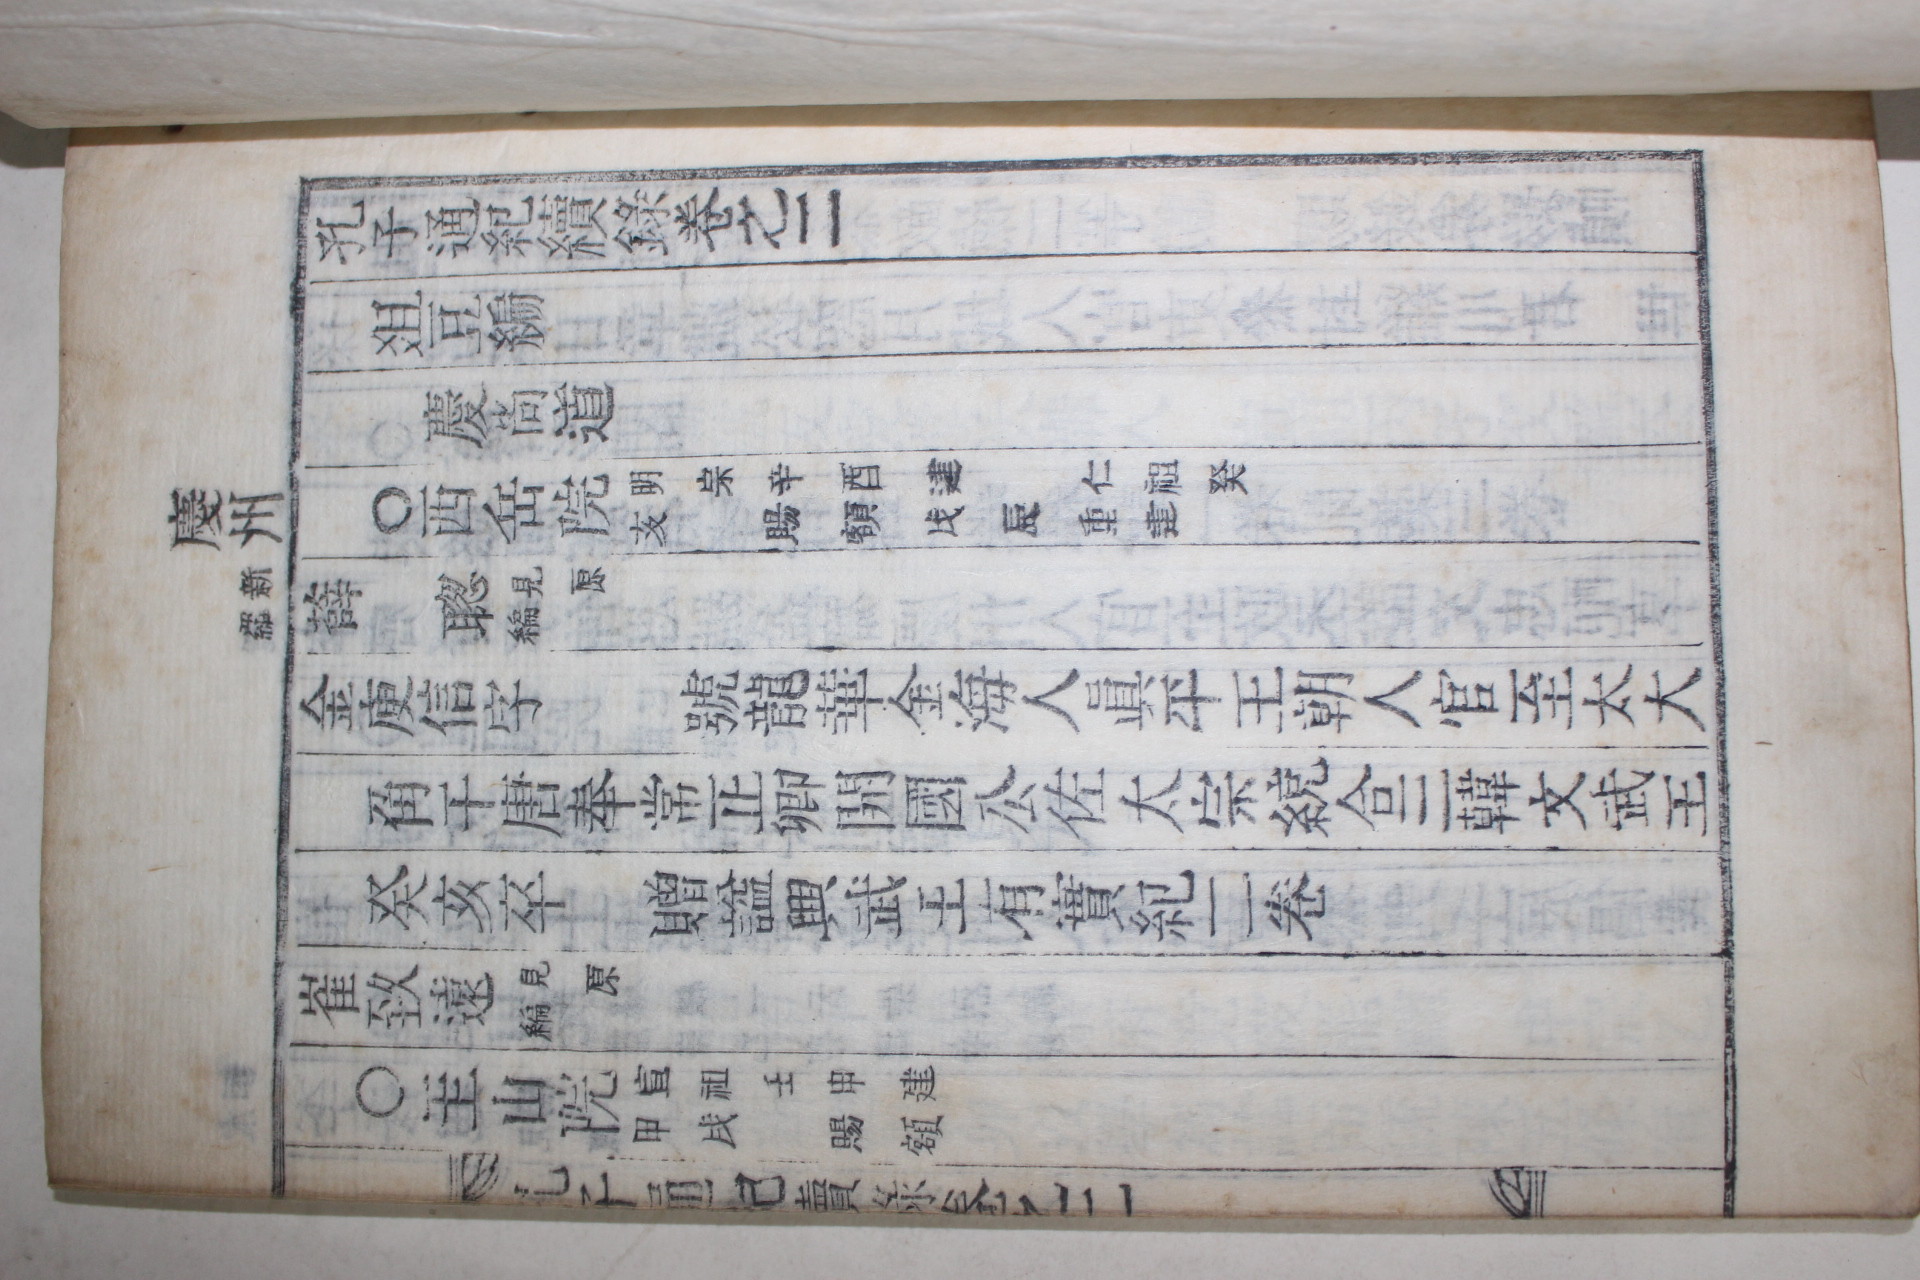 孔子通紀續錄卷之二
俎豆編
慶尙道
慶州
○西岳院
明宗辛酉建 仁祖癸
亥賜額戊辰重建
新
羅
薛 聰
見原
編
金庾信字 號龍華金海人眞平王朝人官至太大
角干唐奉常正卿開國公佐太宗統合三韓文武王
癸亥卒 贈謚興武王有實紀二卷
崔致遠
見原
編
○玉山院
宣祖壬申建
甲戌 賜額
孔子通紀續錄卷之二